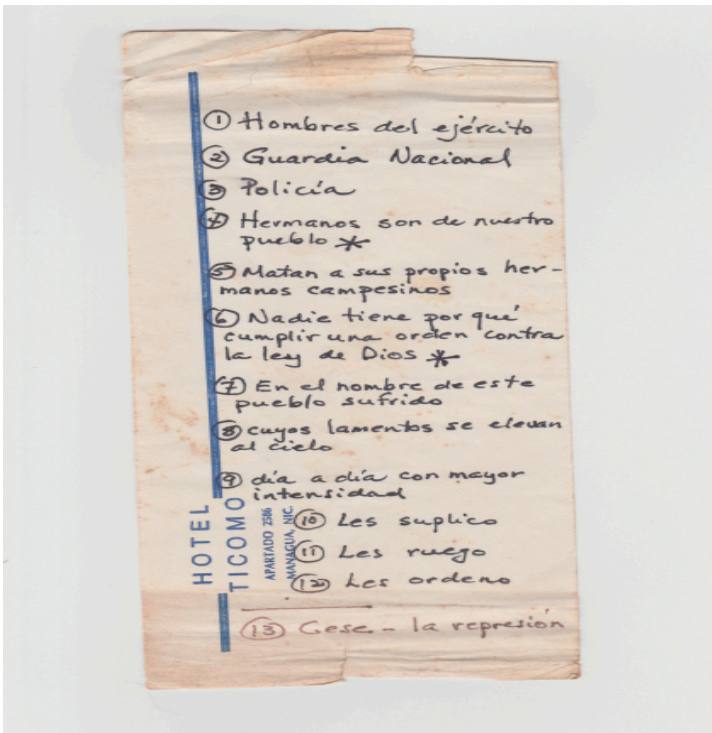 ① Hombres del ejército
② Guardia Nacional
③ Policía
④ Hermanos son de nuestro
pueblo *
⑤ Matan a sus propios her-
manos campesinos
⑥ Nadie tiene por qué
cumplir una orden contra
la ley de Dios *
⑦ En el nombre de este
pueblo sufrido
⑧ cuyos lamentos se elevan
al cielo
⑨ día a día con mayor
intensidad
⑩ Les suplico
⑪ Les ruego
⑫ Les ordeno
⑬ Cese - la represión
HOTEL
TICOMO
APARTADO 2586
MANAGUA, NIC.